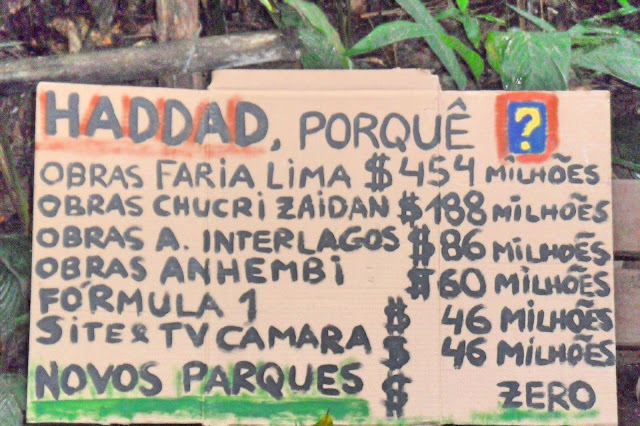 HADDAD, PORQUÊ ?
OBRAS FARIA LIMA $ 454 MILHÕES
OBRAS CHUCRI ZAIDAN $ 188 MILHOES
OBRAS A. INTERLAGOS $ 86 MILHÕES
OBRAS ANHEMBI $ 60 MILHÕES
FÓRMULA 1 $ 46 MILHÕES
SITE & TV CAMARA $ 46 MILHÕES
NOVOS PARQUES $ ZERO